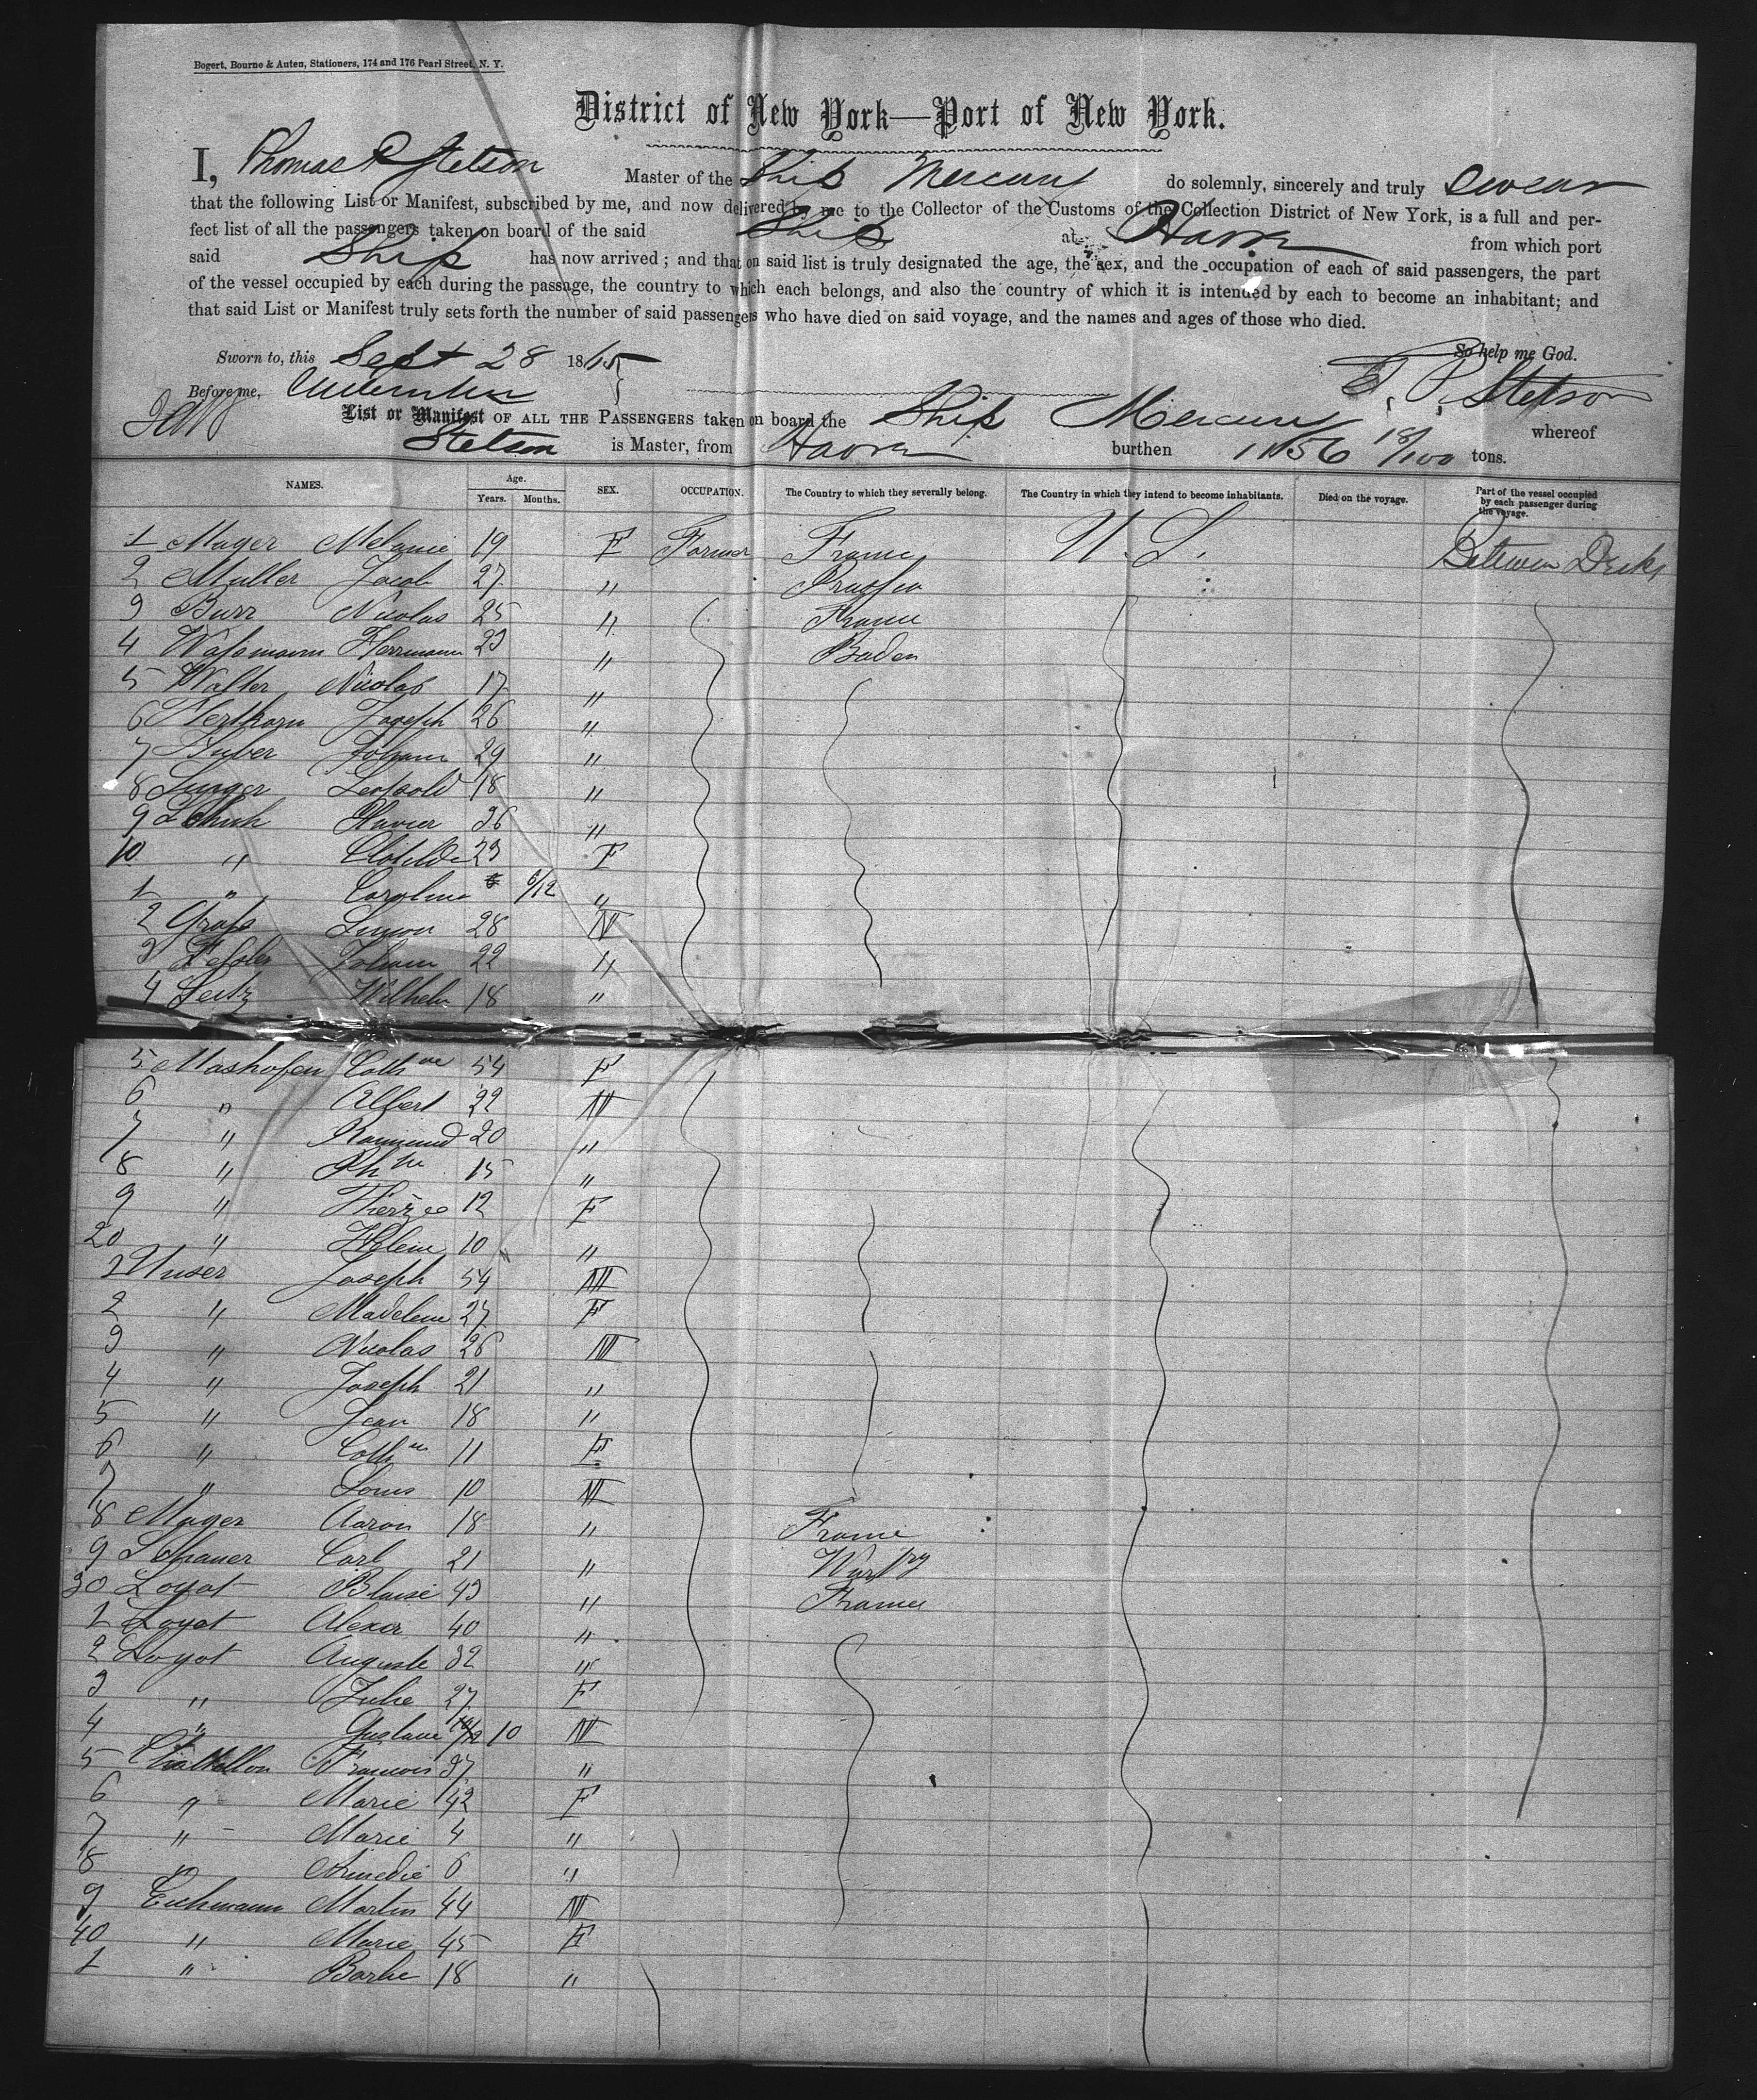 Bogert, Bourne & Auten, Stationers, 174 and 176 Pearl Street, N. Y.
District of New York—Port of New York.
I, Thomas P Stetson Master of the Ship Mercury do solemnly, sincerely and truly Swear
that the following List or Manifest, subscribed by me, and now delivered by me to the Collector of the Customs of the Collection District of New York, is a full and per-
fect list of all the passengers taken on board of the said Ship at Havre from which port
said Ship has now arrived; and that on said list is truly designated the age, the sex, and the occupation of each of said passengers, the part
of the vessel occupied by each during the passage, the country to which each belongs, and also the country of which it is intended by each to become an inhabitant; and
that said List or Manifest truly sets forth the number of said passengers who have died on said voyage, and the names and ages of those who died.
Sworn to, this Sept 28 1865 So help me God.
Before me, T. P. Stetson
List or Manifest OF ALL THE PASSENGERS taken on board the Ship Mercury whereof
Stetson is Master, from Havre burthen 1156 18/100 tons.
NAMES. Age. Years. Months. SEX. OCCUPATION. The Country to which they severally belong. The Country in which they intend to become inhabitants. Died on the voyage. Part of the vessel occupied by each passenger during the voyage.
1 Mayer Melanie 19 F Farmer France U. S. Between Decks
2 Muller Jacob 27 " Prussia
3 Burr Nicolas 25 " France
4 Wassmann Herrmann 23 " Baden
5 Walter Nicolas 17 "
6 Herthorn Joseph 26 "
7 Huber Johann 29 "
8 Singer Leopold 18 "
9 Schuh Xavier 36 "
10 " Clotilde 23 F
1 " Caroline 6/12 "
2 Grass Simon 28 M
3 Kessler Johann 22 "
4 Seitz Wilhelm 18 "
5 Mashofen Cathne 54 F
6 " Albert 22 M
7 " Raimund 20 "
8 " Phpe 15 "
9 " Therese 12 F
20 " Helene 10 "
1 Unser Joseph 54 M
2 " Madelene 27 F
3 " Nicolas 26 M
4 " Joseph 21 "
5 " Jean 18 "
6 " Cathne 11 F
7 " Louis 10 M
8 Mayer Aaron 18 " France
9 Schauer Carl 21 " Wurtbg
30 Loyot Blaise 43 " France
1 Loyot Alexer 40 "
2 Loyot Auguste 32 "
3 " Julie 27 F
4 " Gustave 10/12 10 M
5 Chatillon Francois 37 "
6 " Marie 42 F
7 " Marie 4 "
8 " Amedie 6 "
9 Eichmann Martin 44 M
40 " Marie 45 F
1 " Barbe 18 "